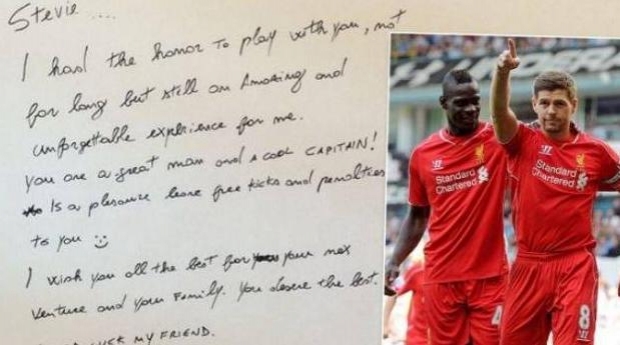 Stevie ....
I had the honor to play with you, not
for long but still an Amazing and
unforgettable experience for me.
you are a great man and a cool CAPITAIN!
Is a pleasure leave free kicks and penalties
to you
I wish you all the best for your nex
venture and your Family. You deserve the best.
MY FRIEND.
Standard
Chartered
Standard
Chartered
4
8